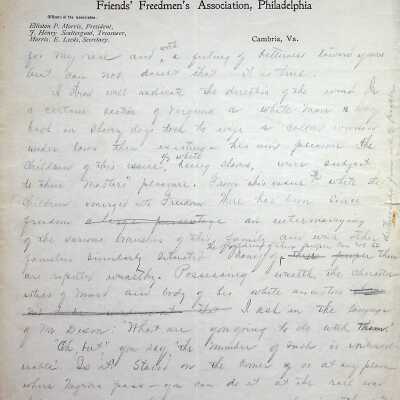 Friends' Freedmen's Association, Philadelphia
Officers of the Association.
Elliston P. Morris, President,
Cambria, Va.
Morris E. Leeds, Secretary.
for my race and with a feeling of bitterness toward yours
but can not doubt that it is true.
I shall well indicate the direction of the wind. In
a certain section of Virginia a white man way
back in slavery days took to wife a colored woman
under laws then existing his own pleasure. The
children of this issue, 7/8 white being slaves, were subject
to their Masters' pleasure. From this issue the white
Children emerged into Freedom. There has been since
freedom a large percentage an intermarrying
of the various branches of this family and with other
families similarly situated. Many of these people them
are reputed wealthy. Possessing wealth the
of mind and body of his white ancestors
I ask in the language
of Mr Dixon 'What are you going to do with them.'
"Oh, but" you say "the number of such is
Is it? Stand on the corner of or at any place
where Negroes pass - you can do it at the